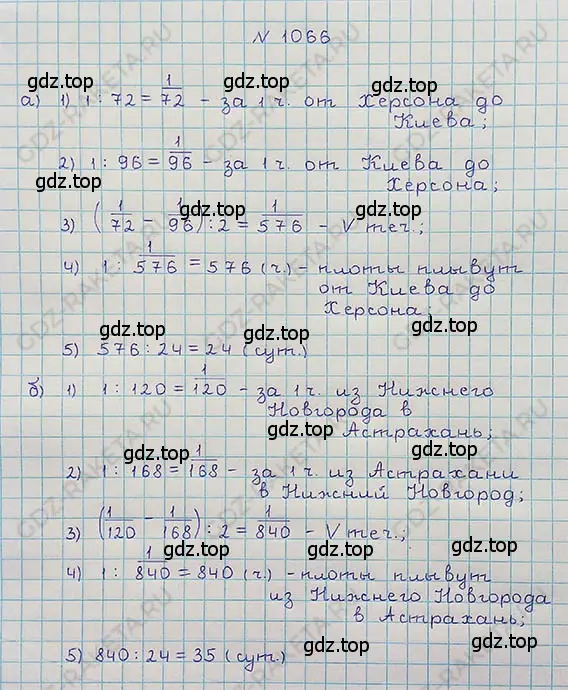 N 1066
а) 1) 1 : 72 = 1/72 - за 1 ч. от Херсона до
Киева;
2) 1 : 96 = 1/96 - за 1 ч. от Киева до
Херсона;
3) (1/72 - 1/96) : 2 = 1/576 - V теч.;
4) 1 : 1/576 = 576 (ч.) - плоты плывут
от Киева до
Херсона;
5) 576 : 24 = 24 (сут.)
б) 1) 1 : 120 = 1/120 - за 1 ч. из Нижнего
Новгорода в
Астрахань;
2) 1 : 168 = 1/168 - за 1 ч. из Астрахани
в Нижний Новгород;
3) (1/120 - 1/168) : 2 = 1/840 - V теч.,
4) 1 : 1/840 = 840 (ч.) - плоты плывут
из Нижнего Новгорода
в Астрахань;
5) 840 : 24 = 35 (сут.)
gdz.top
gdz.top
gdz.top
gdz.top
gdz.top
gdz.top
gdz.top
gdz.top
gdz.top
gdz.top
gdz.top
gdz.top
gdz.top
gdz.top
GDZ-RAKETA.RU